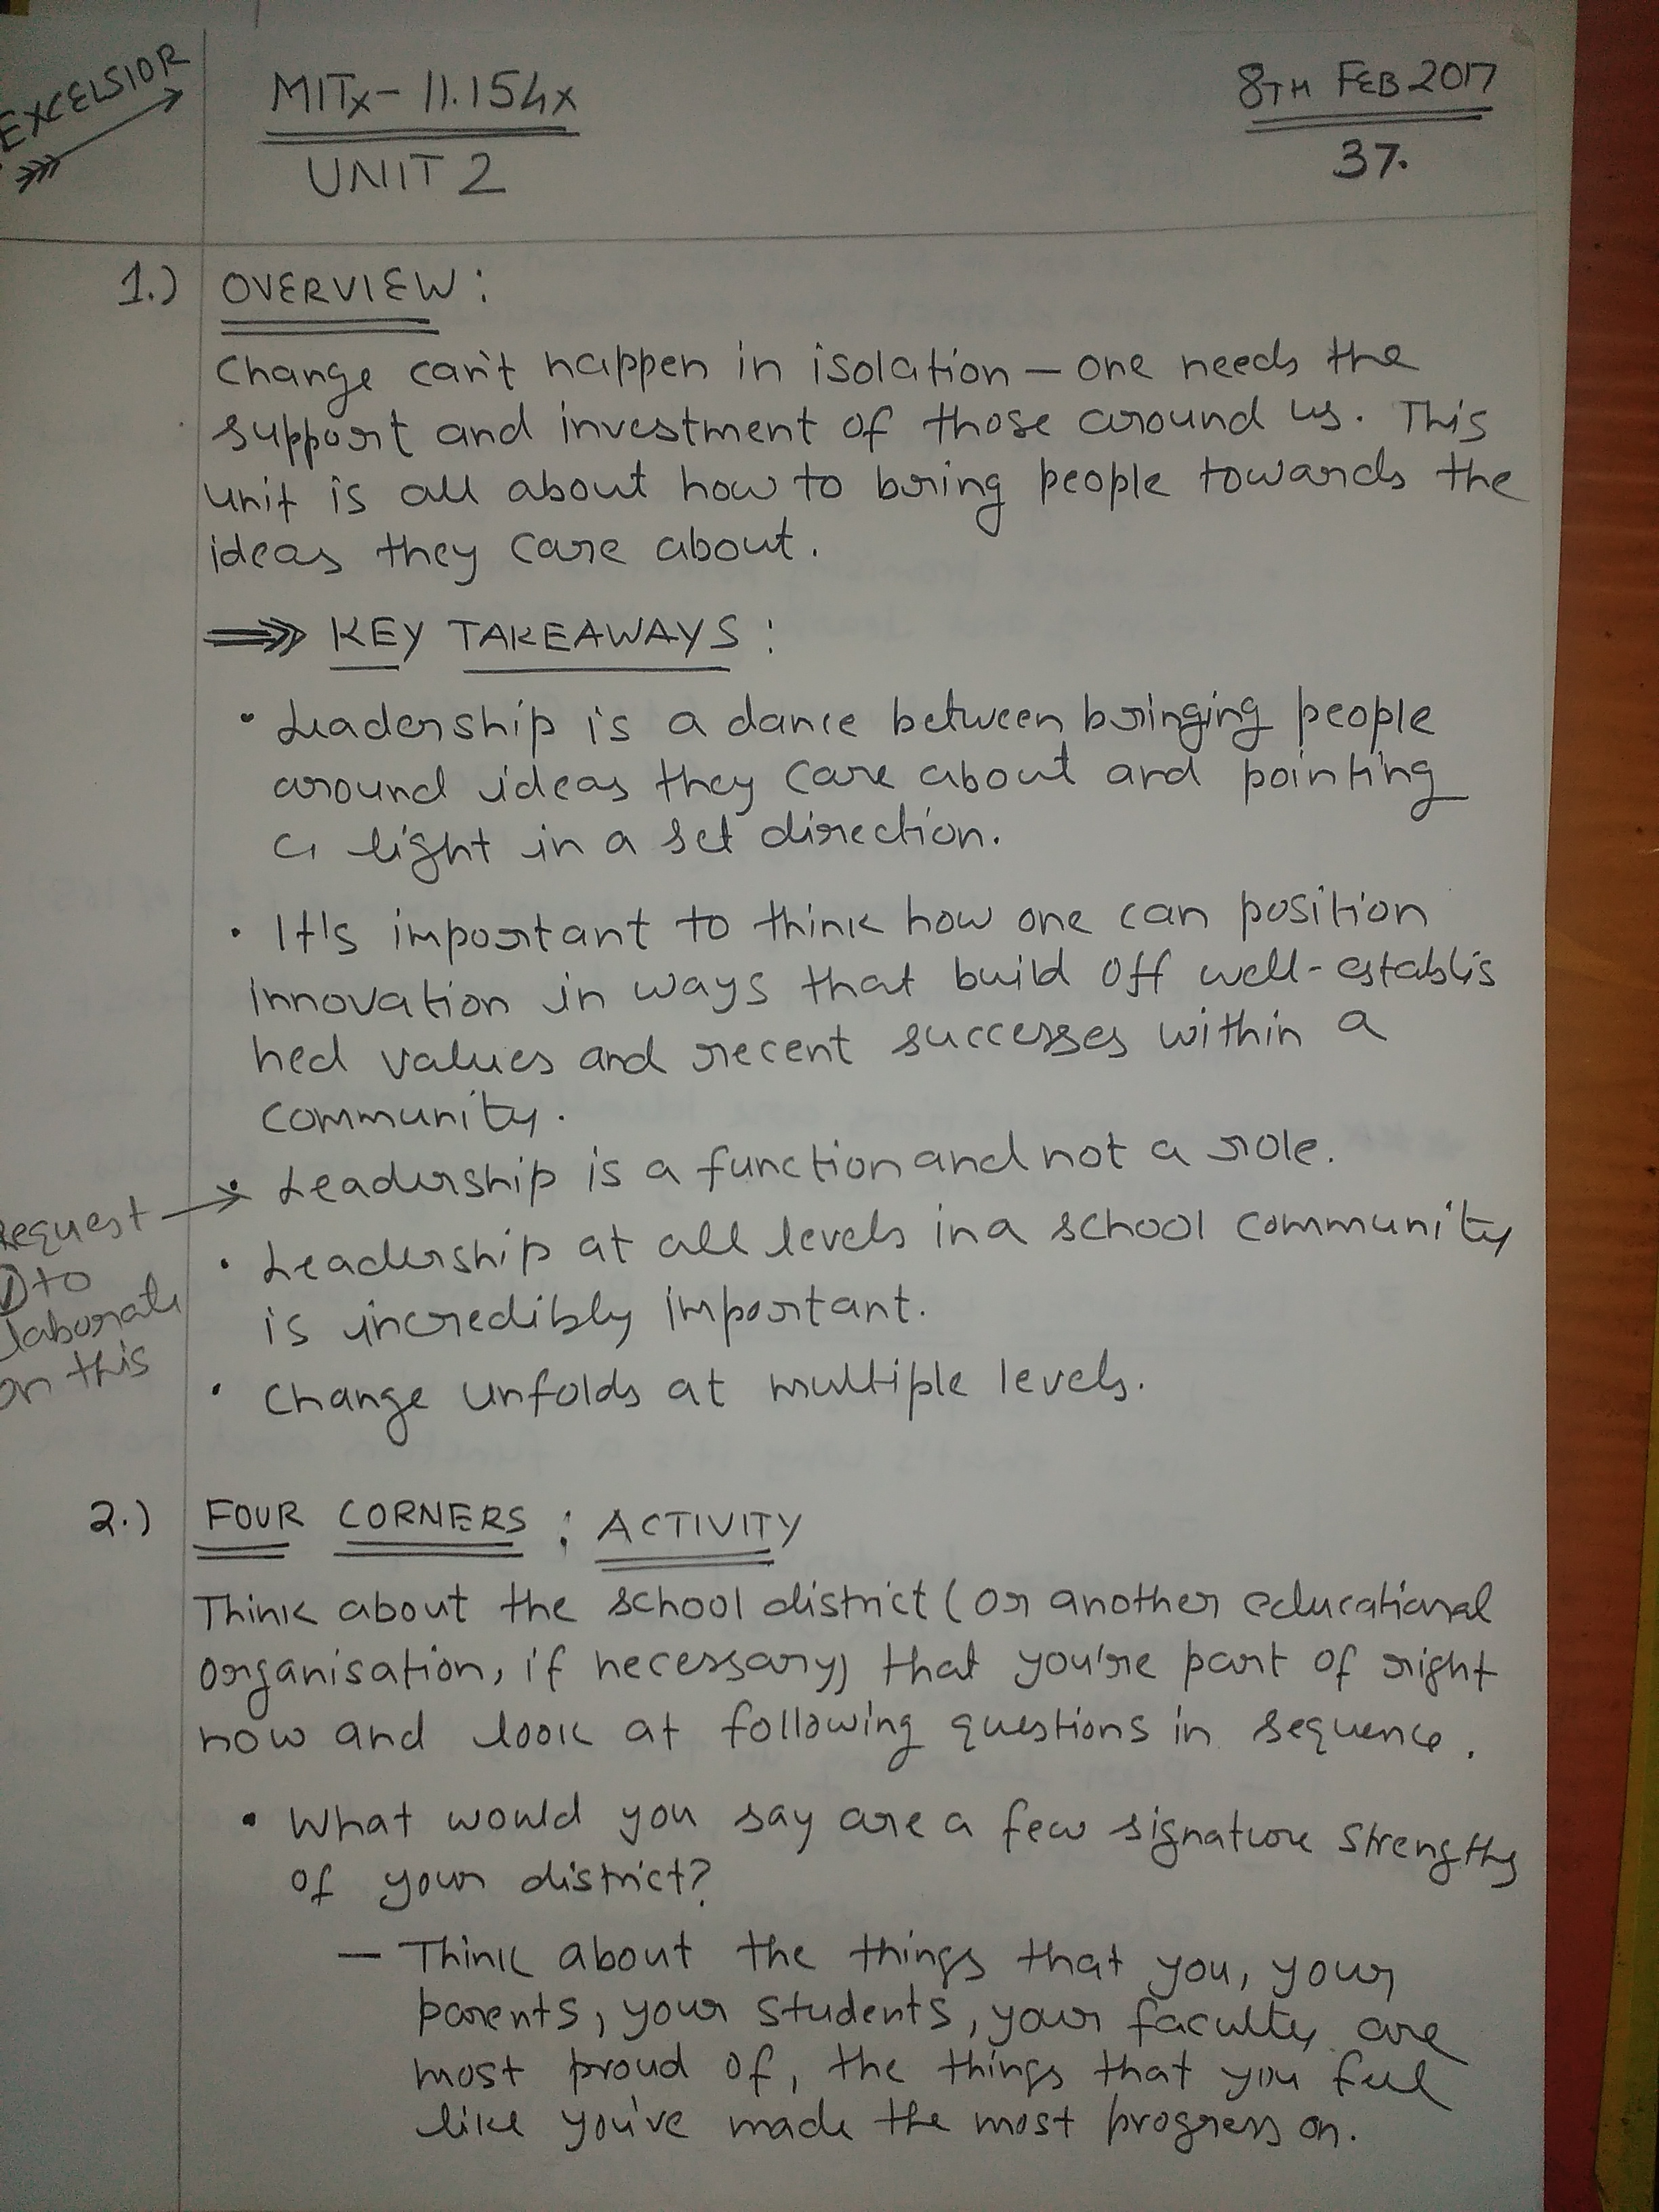 EXCELSIOR
MITx - 11.154x
UNIT 2
8TH FEB 2017
37.
1.) OVERVIEW :
Change can't happen in isolation — one needs the
support and investment of those around us. This
unit is all about how to bring people towards the
ideas they care about.
KEY TAKEAWAYS :
• Leadership is a dance between bringing people
around ideas they care about and pointing
a light in a set direction.
• It's important to think how one can position
innovation in ways that build off well-establis
hed values and recent successes within a
community.
• Leadership is a function and not a role.
• Leadership at all levels in a school community
is incredibly important.
• Change unfolds at multiple levels.
Request
to
laborate
on this
2.) FOUR CORNERS : ACTIVITY
Think about the school district (or another educational
organisation, if necessary) that you're part of right
now and look at following questions in sequence.
• What would you say are a few signature strengths
of your district?
— Think about the things that you, your
parents, your students, your faculty are
most proud of, the things that you feel
like you've made the most progress on.